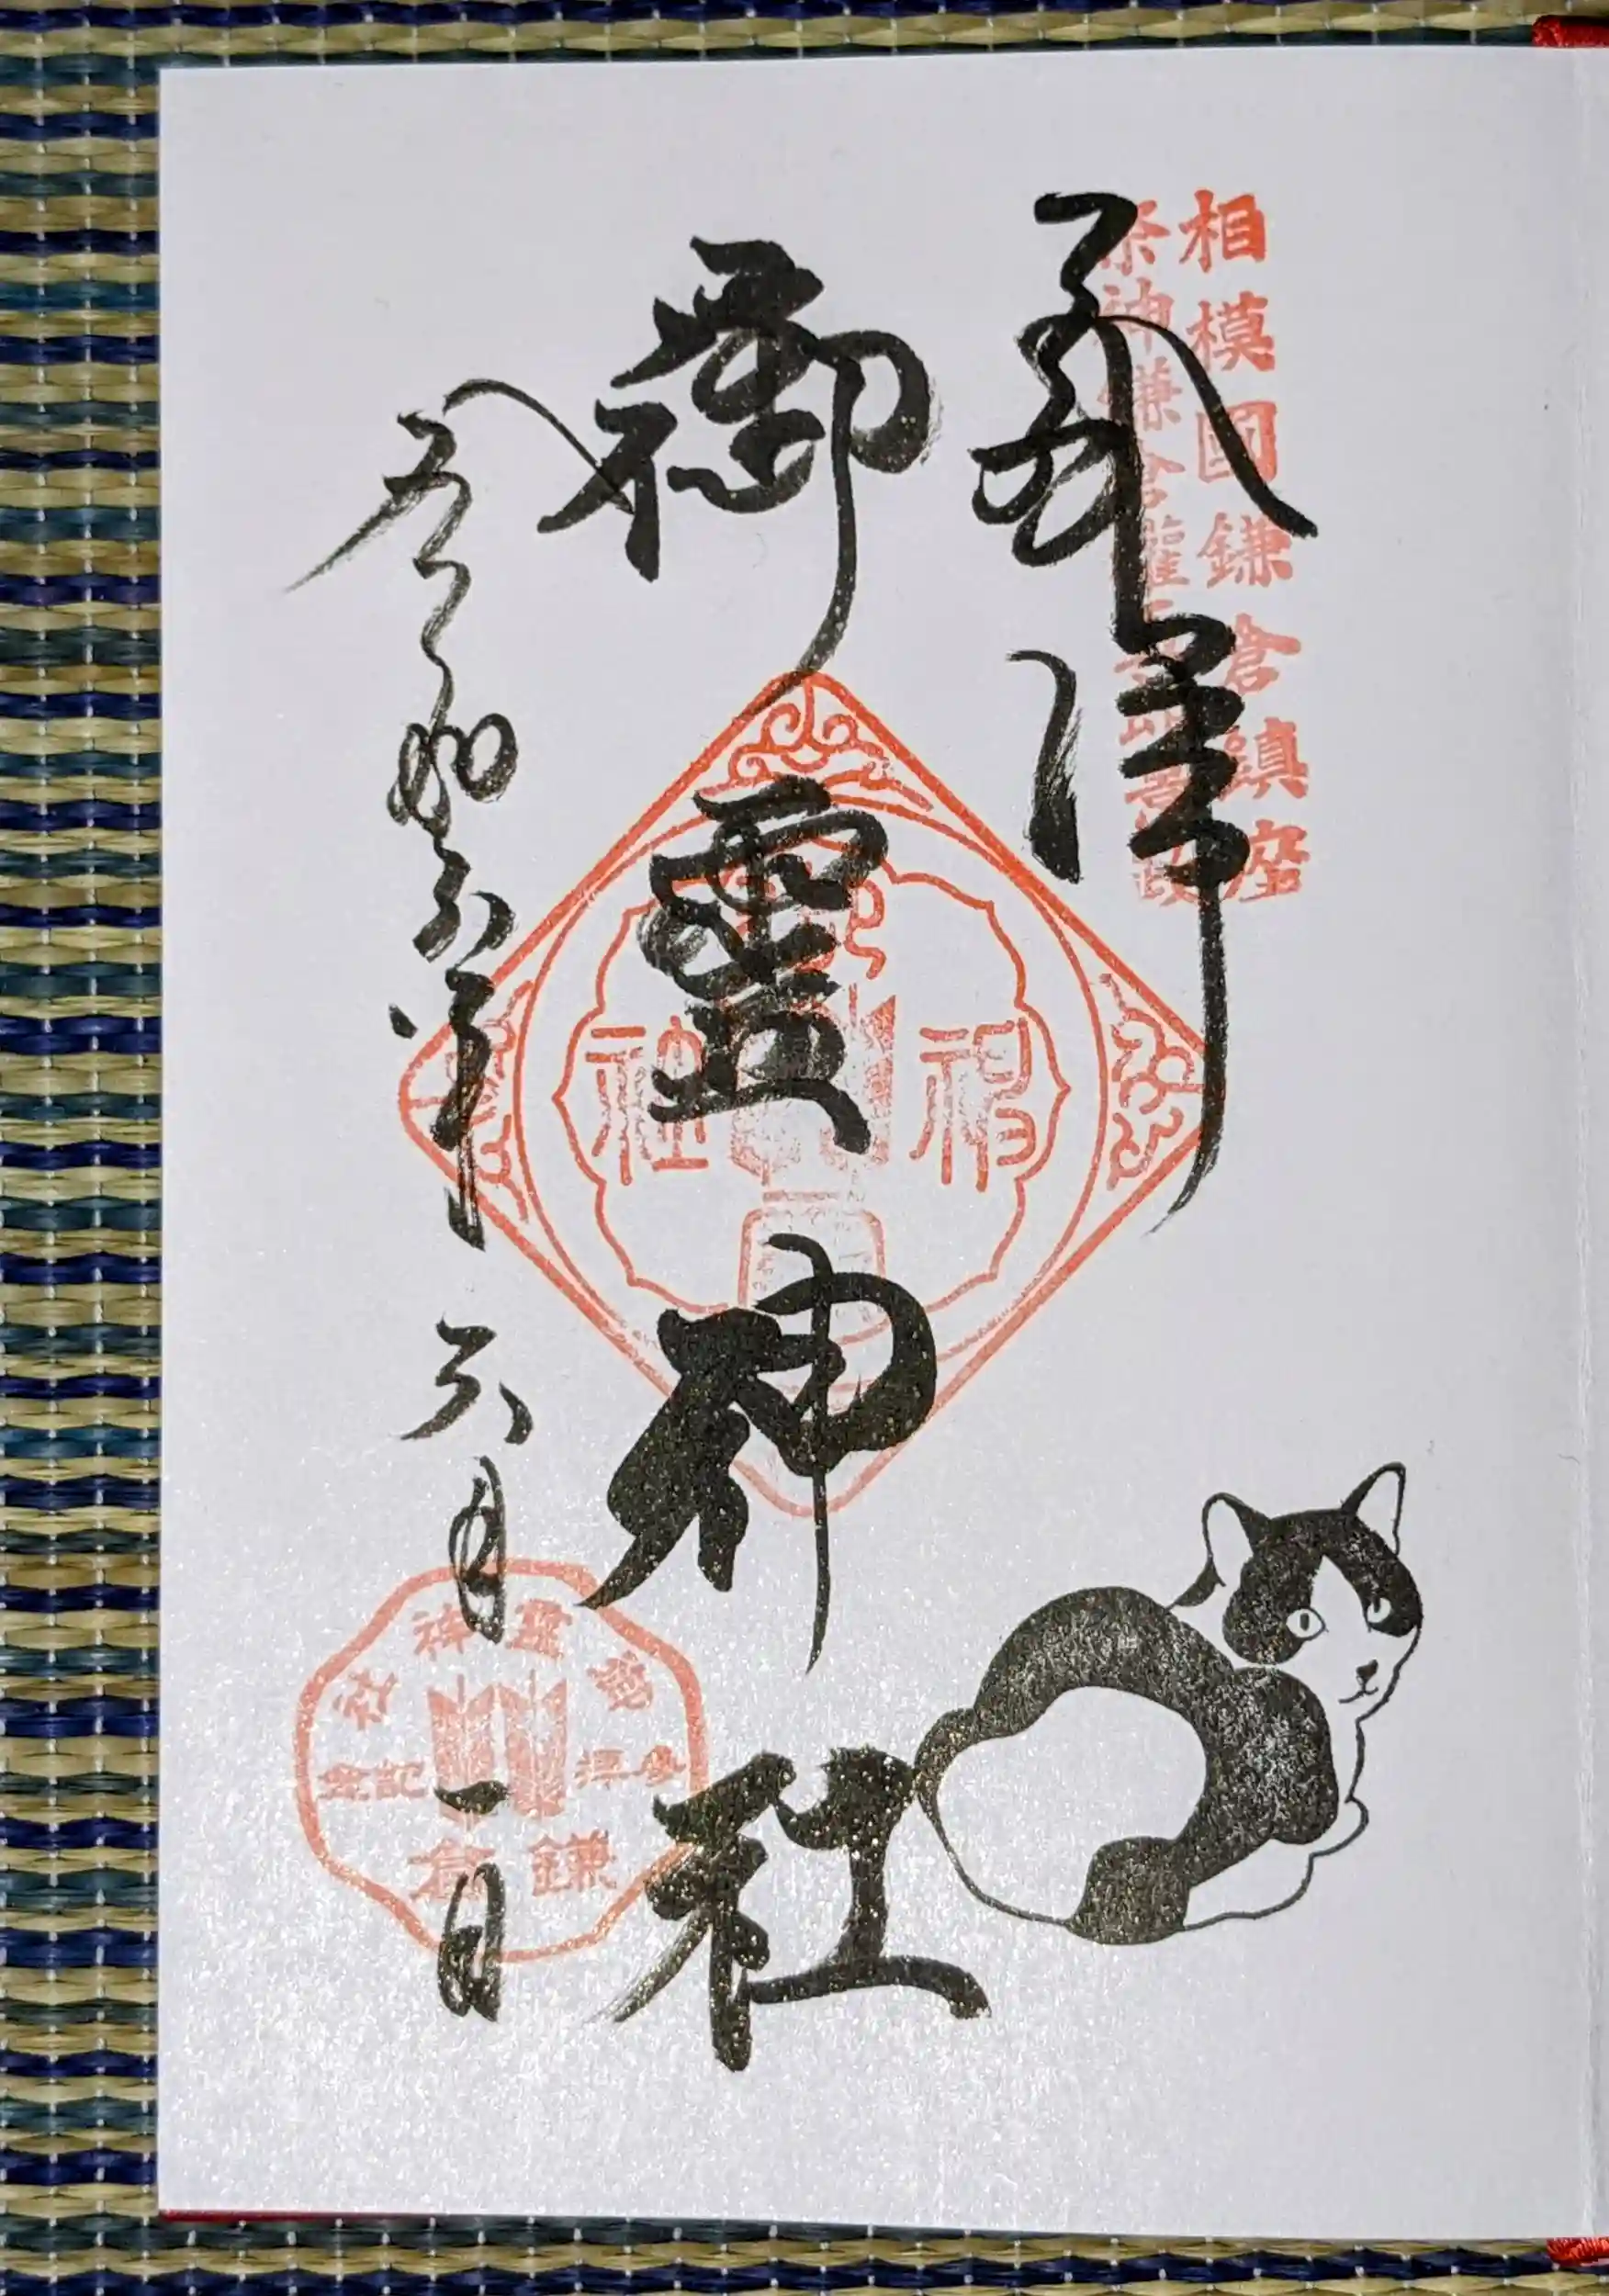 相模國鎌倉鎮座
祭神鎌倉權五郎景政
奉拝
御靈神社
令和六年六月一日
御靈神社
参拝記念
鎌倉